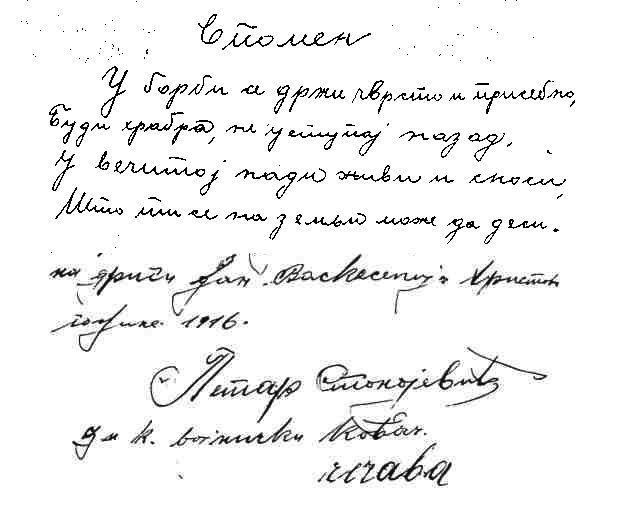 Спомен
У борби се држи чврсто и присебно,
Буди храбра, не уступај назад.
У вечитој нади живи и сноси,
Што ти се на земљи може да деси.
на други дан Васкрсенија Христов
године 1916.
Петар Стонојевић
к. војнички ковач.